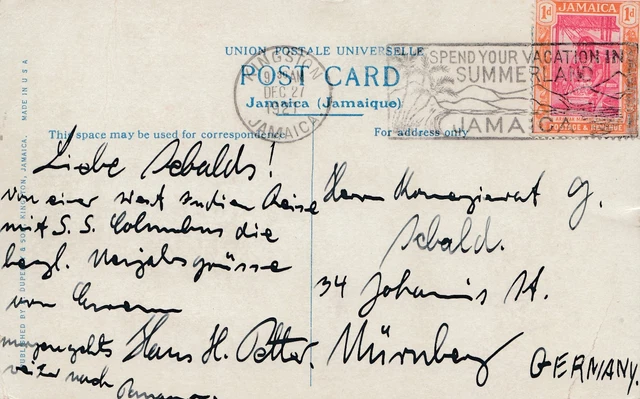 UNION POSTALE UNIVERSELLE
POST CARD
Jamaica (Jamaique)
KINGSTON
DEC 27
JAMAICA
SPEND YOUR VACATION IN
SUMMERLAND
JAMAICA
JAMAICA
1d 1d
POSTAGE & REVENUE
MADE IN U S A
KINGSTON, JAMAICA.
PUBLISHED BY
This space may be used for correspondence
For address only
Liebe Sebalds!
von einer West Indien Reise
mit S. S. Columbus die
herzl. Neujahrsgrüsse
von
Hans H. Petter.
weiter nach
Herrn Komerzienrat G.
Sebald.
34 Johannis St.
Nürnberg
GERMANY.